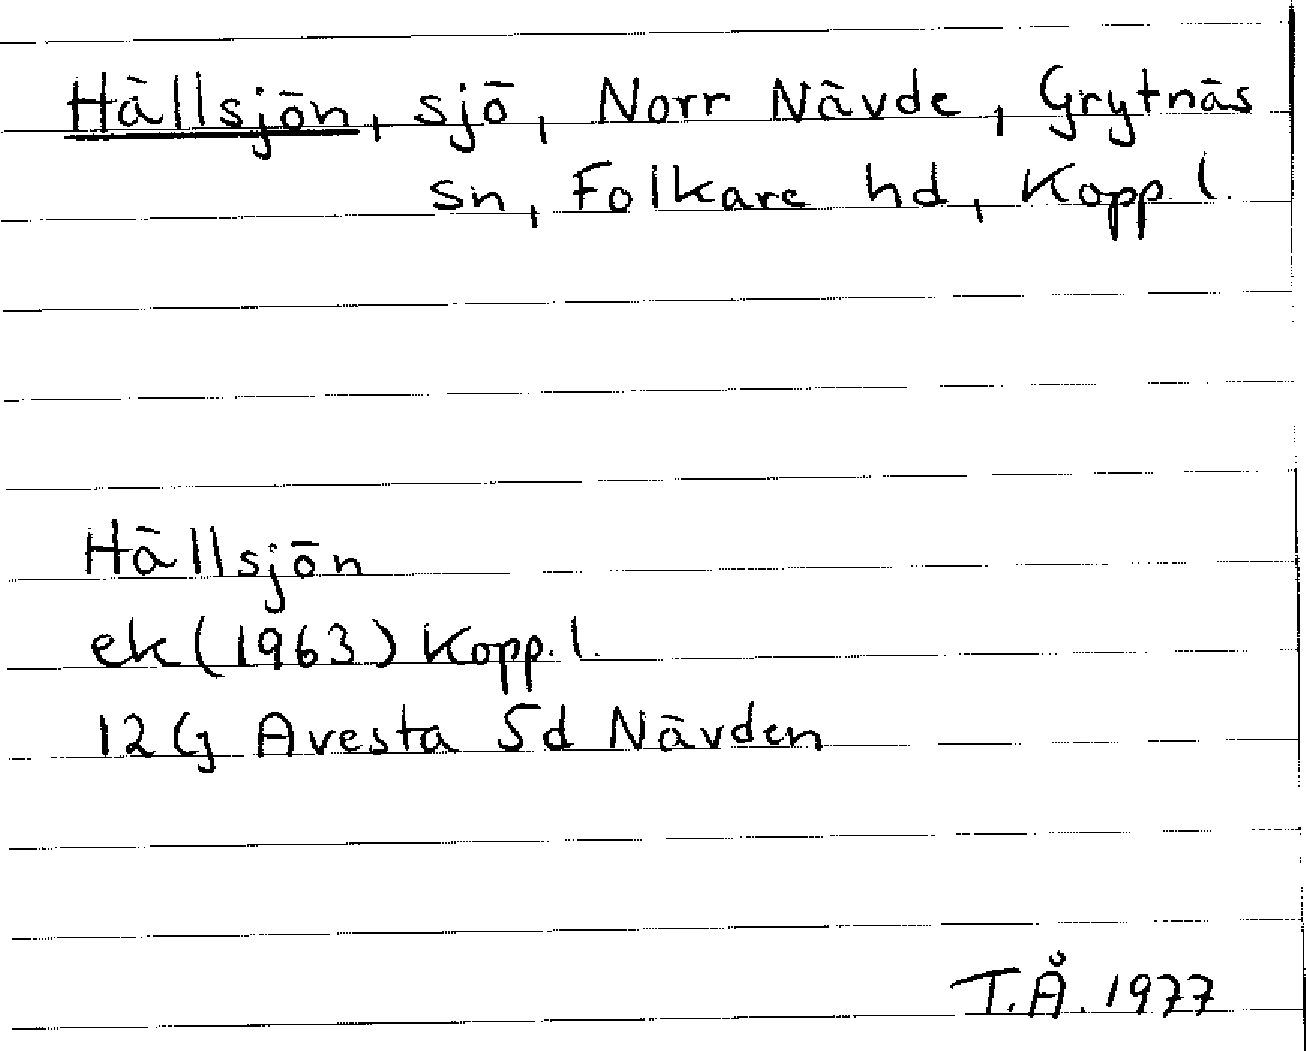 Hällsjön, sjö, Norr Nävde, Grytnäs
sn, Folkare hd, Kopp l.
Hällsjön
ek (1963) Kopp. l.
12 G Avesta 5d Nävden
T.Å. 1977